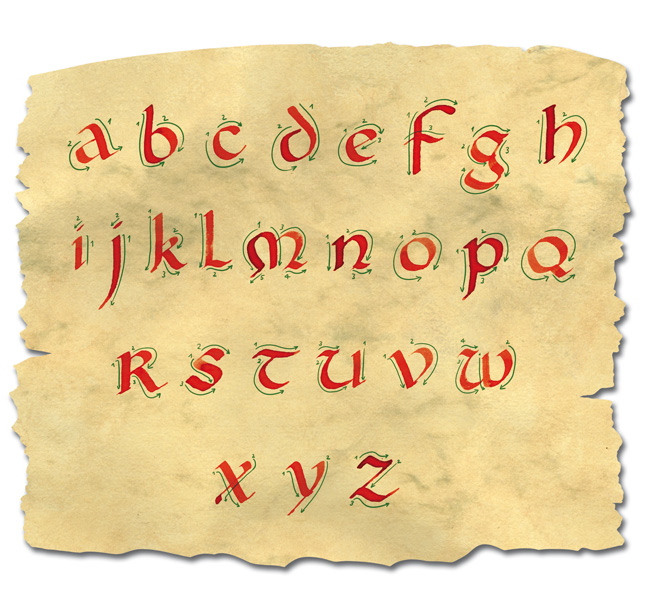 a b c d e f g h
i j k l m n o p Q
R s t u v w
x y z